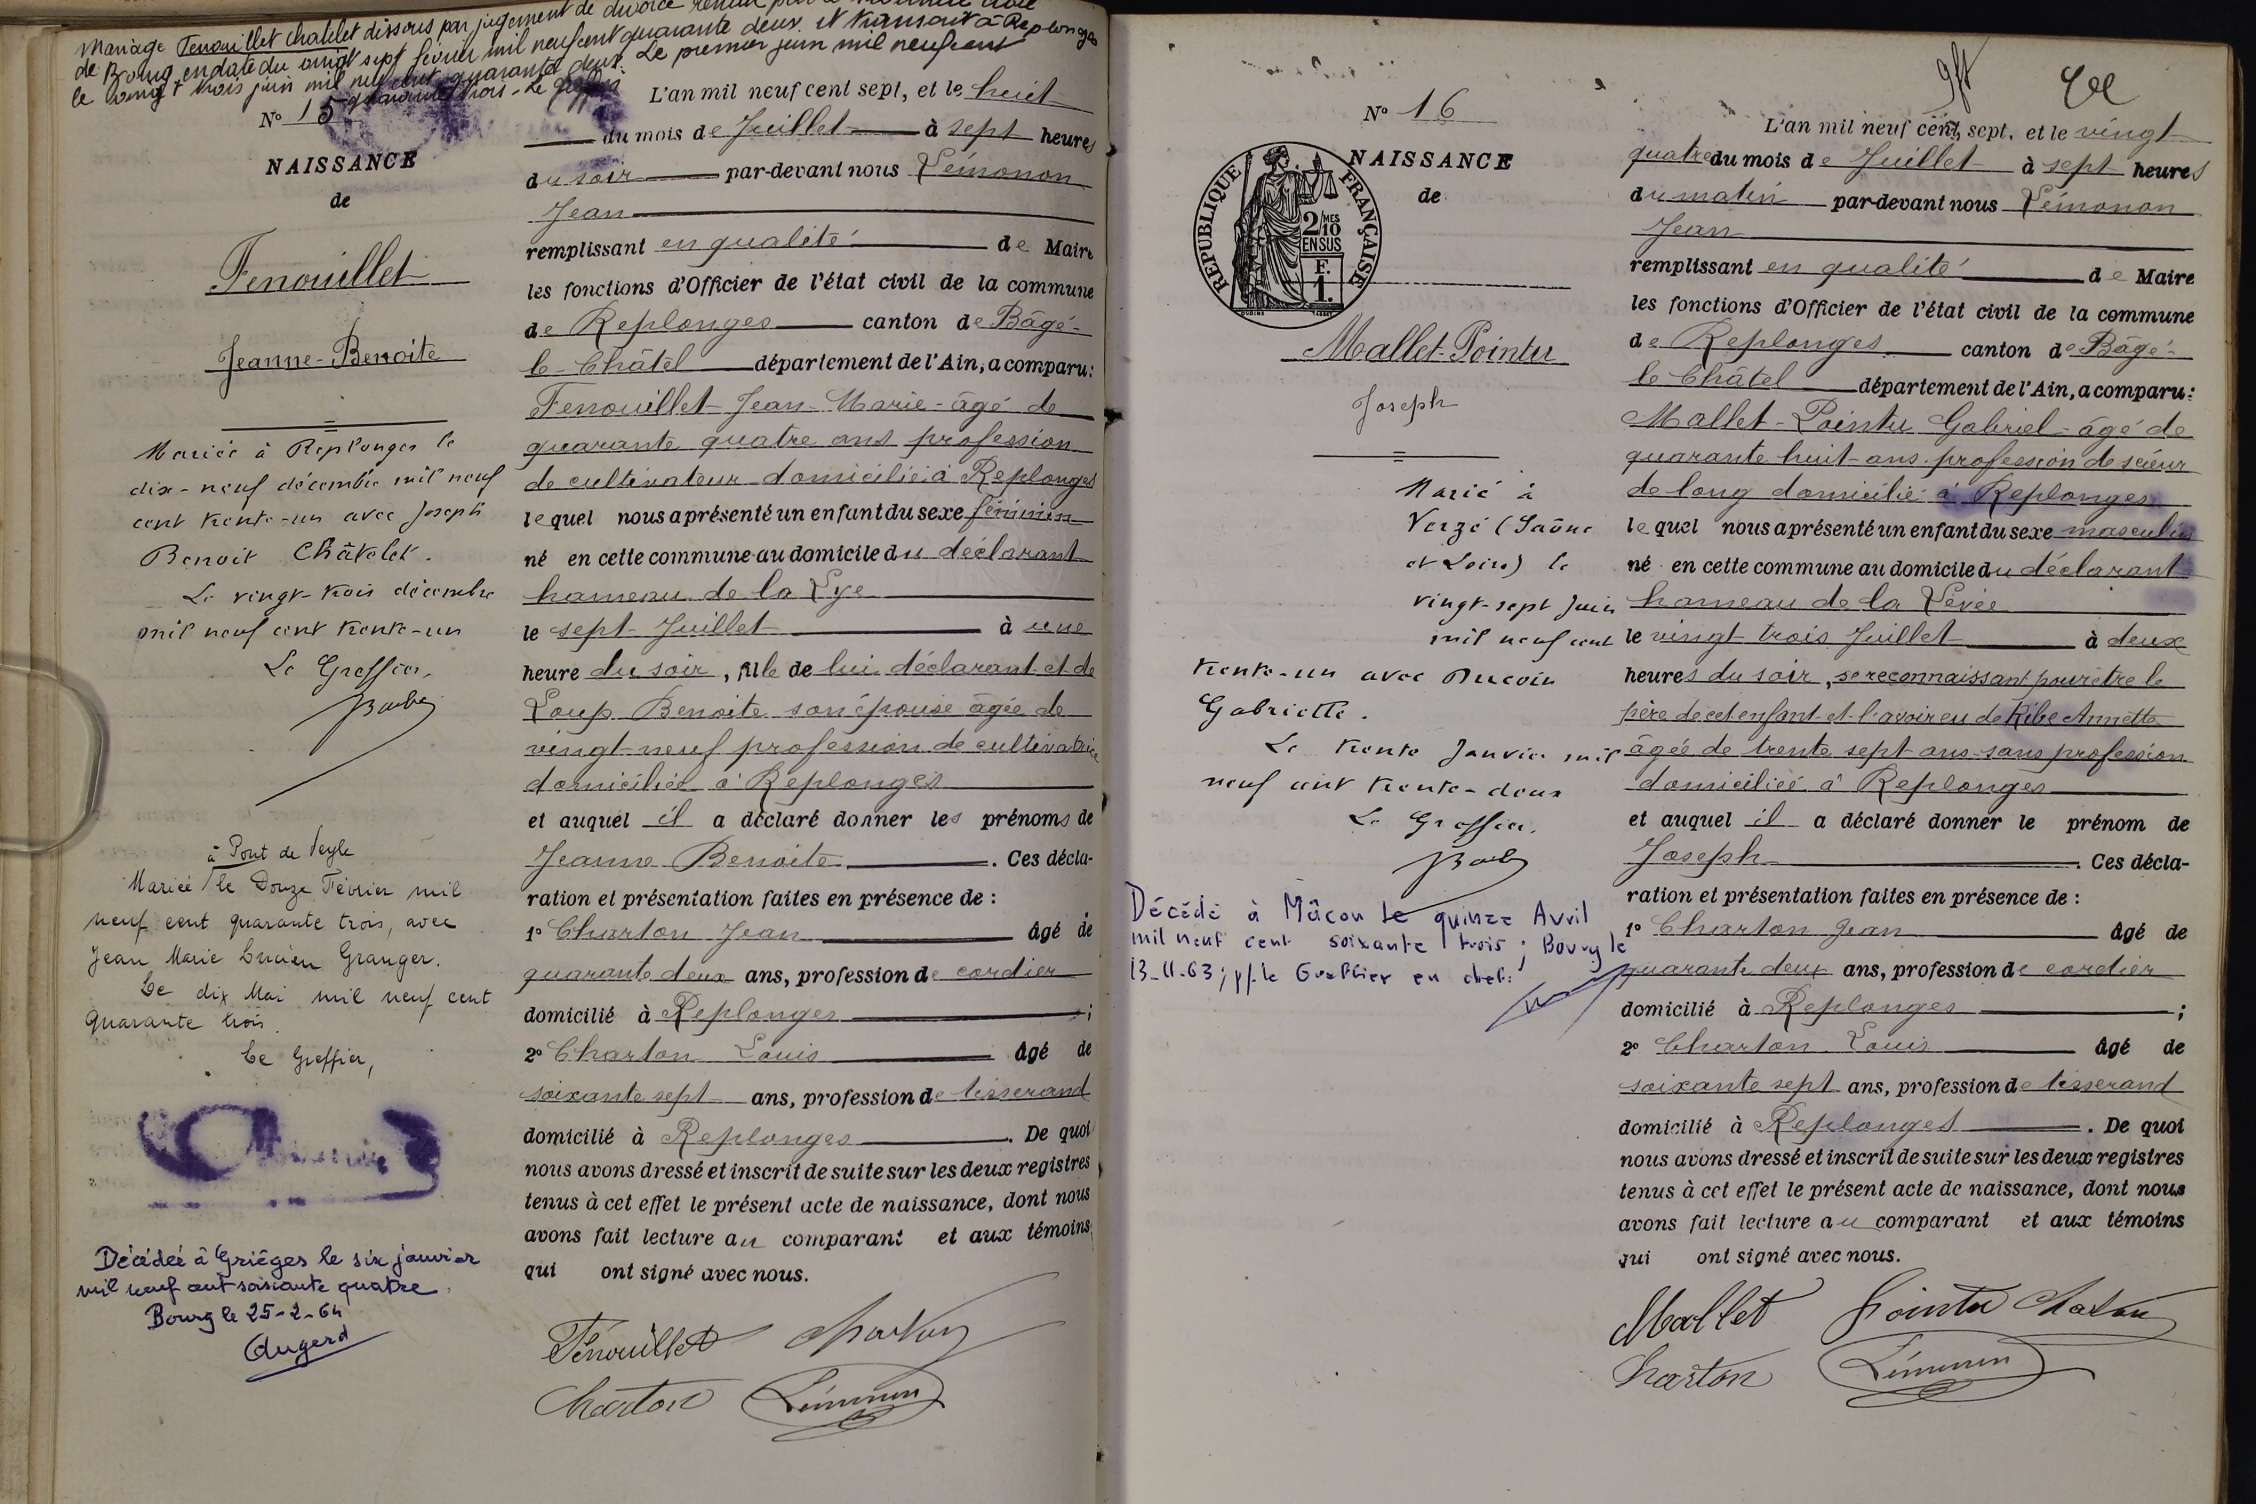 Mariage Fenouillet Chatelet dissous par jugement de divorce rendu par le
de Bourg en date du vingt sept février mil neuf cent quarante deux et transcrit à Replonges
le vingt trois juin mil neuf cent quarante deux. Le premier juin mil neuf cent
quarante trois - Le Greffier
N° 15
NAISSANCE
de
Fenouillet
Jeanne-Benoite
Mariée à Replonges le
dix-neuf décembre mil neuf
cent trente-un avec Joseph
Benoit Châtelet.
Le vingt-trois décembre
mil neuf cent trente-un
Le Greffier,
à Pont de Veyle
Mariée le Douze Février mil
neuf cent quarante trois, avec
Jean Marie Lucien Granger.
Le dix Mai mil neuf cent
Quarante trois.
Le Greffier,
Décédée à Grièges le six janvier
mil neuf cent soixante quatre
Bourg le 25-2-64
Augerd
L'an mil neuf cent sept, et le huit
du mois de Juillet à sept heures
du soir par-devant nous Lémonon
Jean
remplissant en qualité de Maire
les fonctions d'Officier de l'état civil de la commune
de Replonges canton de Bâgé-
le-Châtel département de l'Ain, a comparu:
Fenouillet Jean-Marie âgé de
quarante quatre ans profession
de cultivateur domicilié à Replonges
lequel nous a présenté un enfant du sexe féminin
né en cette commune au domicile du déclarant
hameau de la Lye
le sept Juillet à une
heure du soir, fille de lui déclarant et de
Loup Benoite son épouse âgée de
vingt-neuf profession de cultivatrice
domiciliée à Replonges
et auquel il a déclaré donner les prénoms de
Jeanne Benoite. Ces décla-
ration et présentation faites en présence de :
1° Charton Jean âgé de
quarante deux ans, profession de cordier
domicilié à Replonges ;
2° Charton Louis âgé de
soixante sept ans, profession de tisserand
domicilié à Replonges. De quoi
nous avons dressé et inscrit de suite sur les deux registres
tenus à cet effet le présent acte de naissance, dont nous
avons fait lecture au comparant et aux témoins
qui ont signé avec nous.
Fenouillet Charton
Charton Lémonon
N° 16
NAISSANCE
de
RÉPUBLIQUE FRANÇAISE
2/10 MES
EN SUS
F.
1.
Mallet-Pointu
Joseph
Marié à
Verzé (Saône
et Loire) le
vingt-sept Juin
mil neuf cent
trente-un avec Ducoin
Gabrielle.
Le trente Janvier mil
neuf cent trente-deux
Le Greffier,
Décédé à Mâcon le quinze Avril
mil neuf cent soixante trois ; Bourg le
13-11-63 ; p/ le Greffier en chef:
L'an mil neuf cent sept, et le vingt
quatre du mois de Juillet à sept heures
du matin par-devant nous Lémonon
Jean
remplissant en qualité de Maire
les fonctions d'Officier de l'état civil de la commune
de Replonges canton de Bâgé-
le Châtel département de l'Ain, a comparu :
Mallet-Pointu Gabriel âgé de
quarante huit ans profession de scieur
de long domicilié à Replonges
lequel nous a présenté un enfant du sexe masculin
né en cette commune au domicile du déclarant
hameau de la Levée
le vingt trois Juillet à deux
heures du soir, se reconnaissant pour être le
père de cet enfant et l'avoir eu de Ribe Annette
âgée de trente sept ans sans profession
domiciliée à Replonges
et auquel il a déclaré donner le prénom de
Joseph. Ces décla-
ration et présentation faites en présence de :
1° Charton Jean âgé de
quarante deux ans, profession de cordier
domicilié à Replonges ;
2° Charton Louis âgé de
soixante sept ans, profession de tisserand
domicilié à Replonges. De quoi
nous avons dressé et inscrit de suite sur les deux registres
tenus à cet effet le présent acte de naissance, dont nous
avons fait lecture au comparant et aux témoins
qui ont signé avec nous.
Mallet Pointu Charton
Charton Lémonon